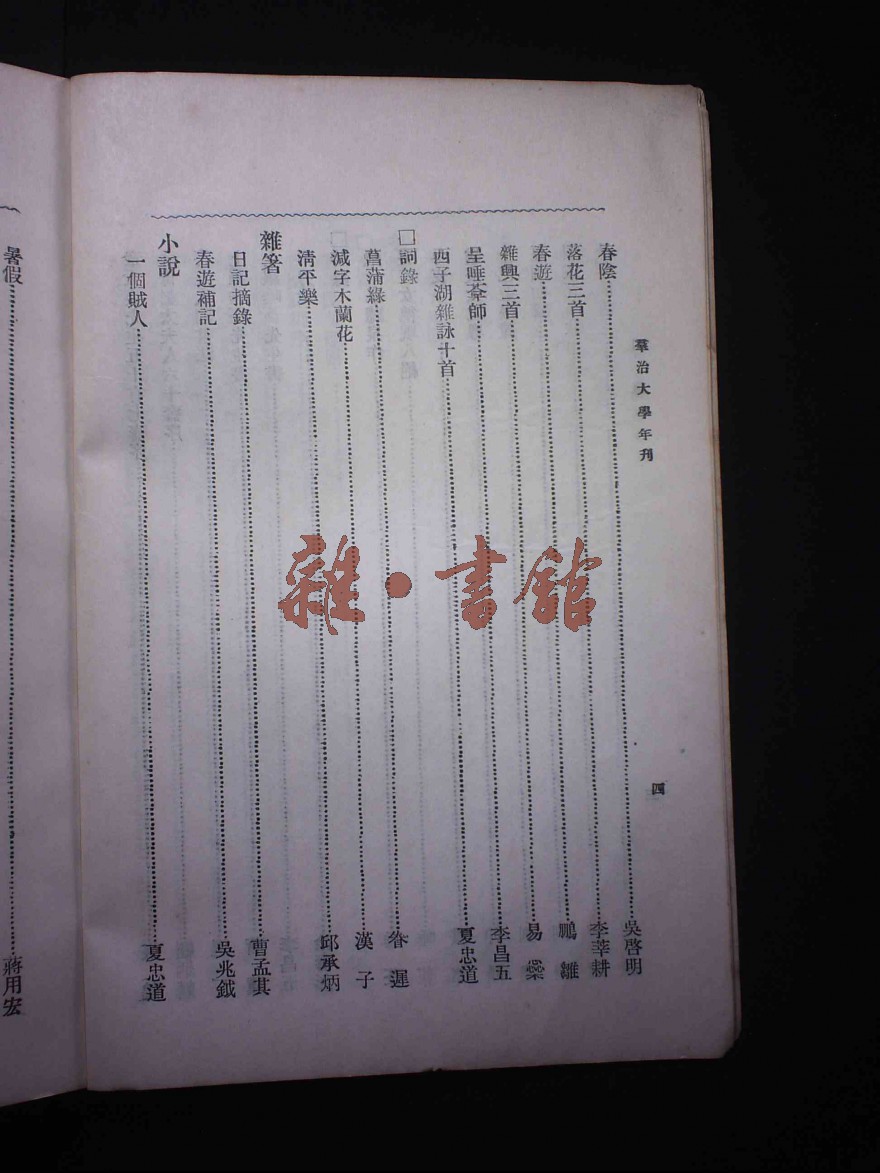 羣治大學年刊
四
春陰……吳啓明
落花三首……李莘耕
春遊……鵬雛
雜興三首……易爕
呈唾菴師……李昌五
西子湖雜詠十首……夏忠道
□詞錄
菖蒲綠……眷遲
減字木蘭花……漢子
淸平樂……邱承炳
雜箸
日記摘錄……曹孟其
春遊補記……吳兆鉞
小說
一個賊人……夏忠道
暑假……蔣用宏
雜·書館